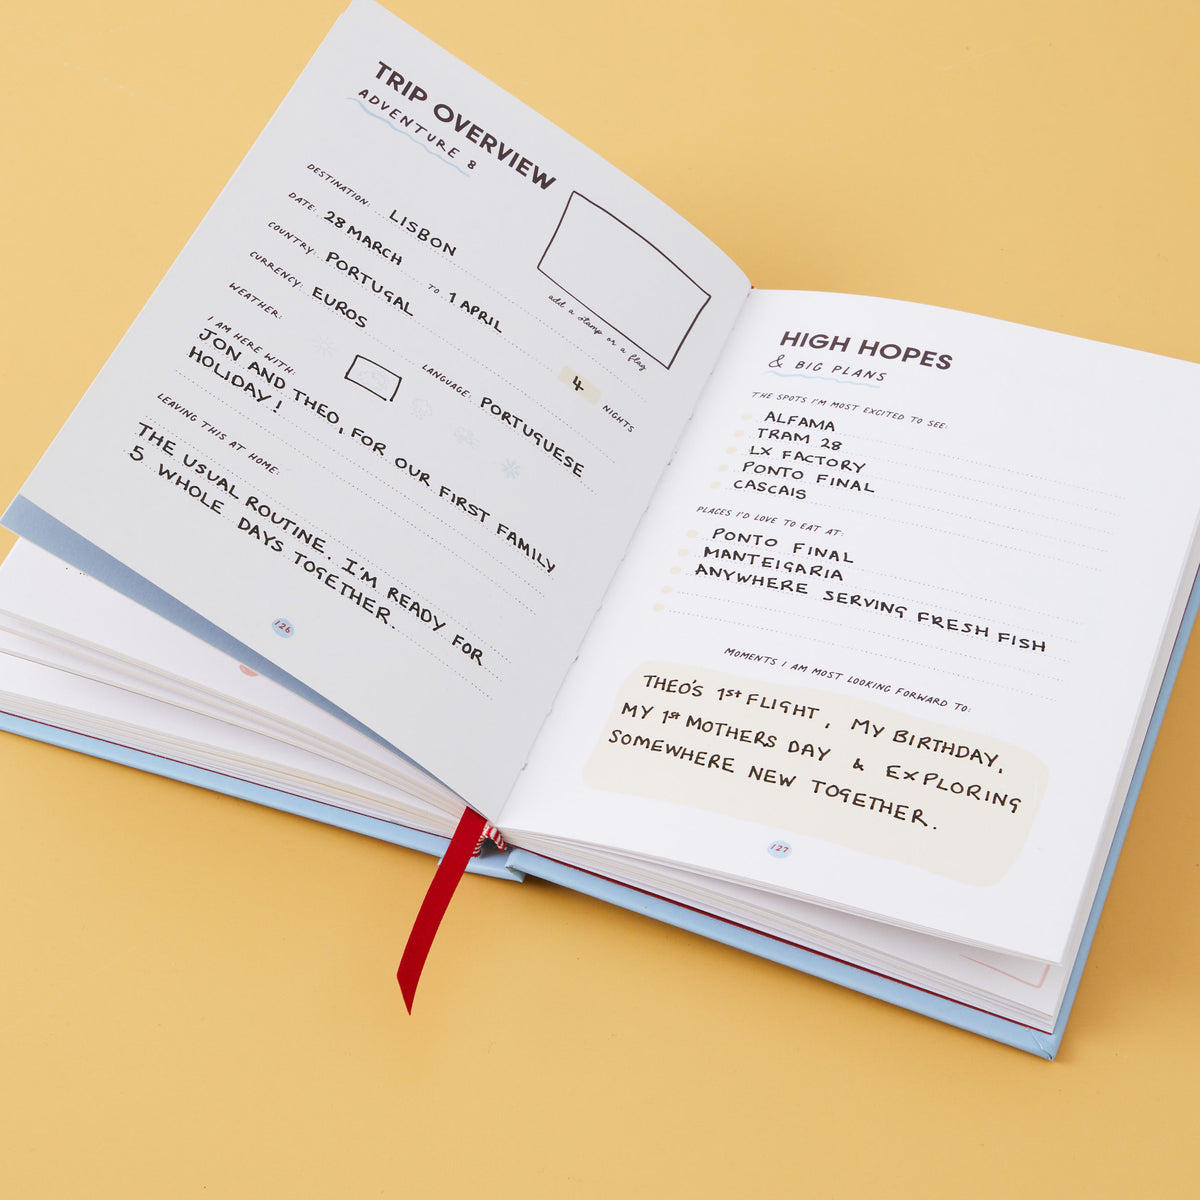 TRIP OVERVIEW
ADVENTURE 8
DESTINATION: LISBON
DATE: 28 MARCH TO 1 APRIL
COUNTRY: PORTUGAL
4 NIGHTS
CURRENCY: EUROS
LANGUAGE: PORTUGUESE
WEATHER:
add a stamp or a flag
I AM HERE WITH:
JON AND THEO, FOR OUR FIRST FAMILY
HOLIDAY!
LEAVING THIS AT HOME:
THE USUAL ROUTINE. I'M READY FOR
5 WHOLE DAYS TOGETHER.
126
HIGH HOPES
& BIG PLANS
THE SPOTS I'M MOST EXCITED TO SEE:
ALFAMA
TRAM 28
LX FACTORY
PONTO FINAL
CASCAIS
PLACES I'D LOVE TO EAT AT:
PONTO FINAL
MANTEIGARIA
ANYWHERE SERVING FRESH FISH
MOMENTS I AM MOST LOOKING FORWARD TO:
THEO'S 1st FLIGHT, MY BIRTHDAY,
MY 1st MOTHERS DAY & EXPLORING
SOMEWHERE NEW TOGETHER.
127